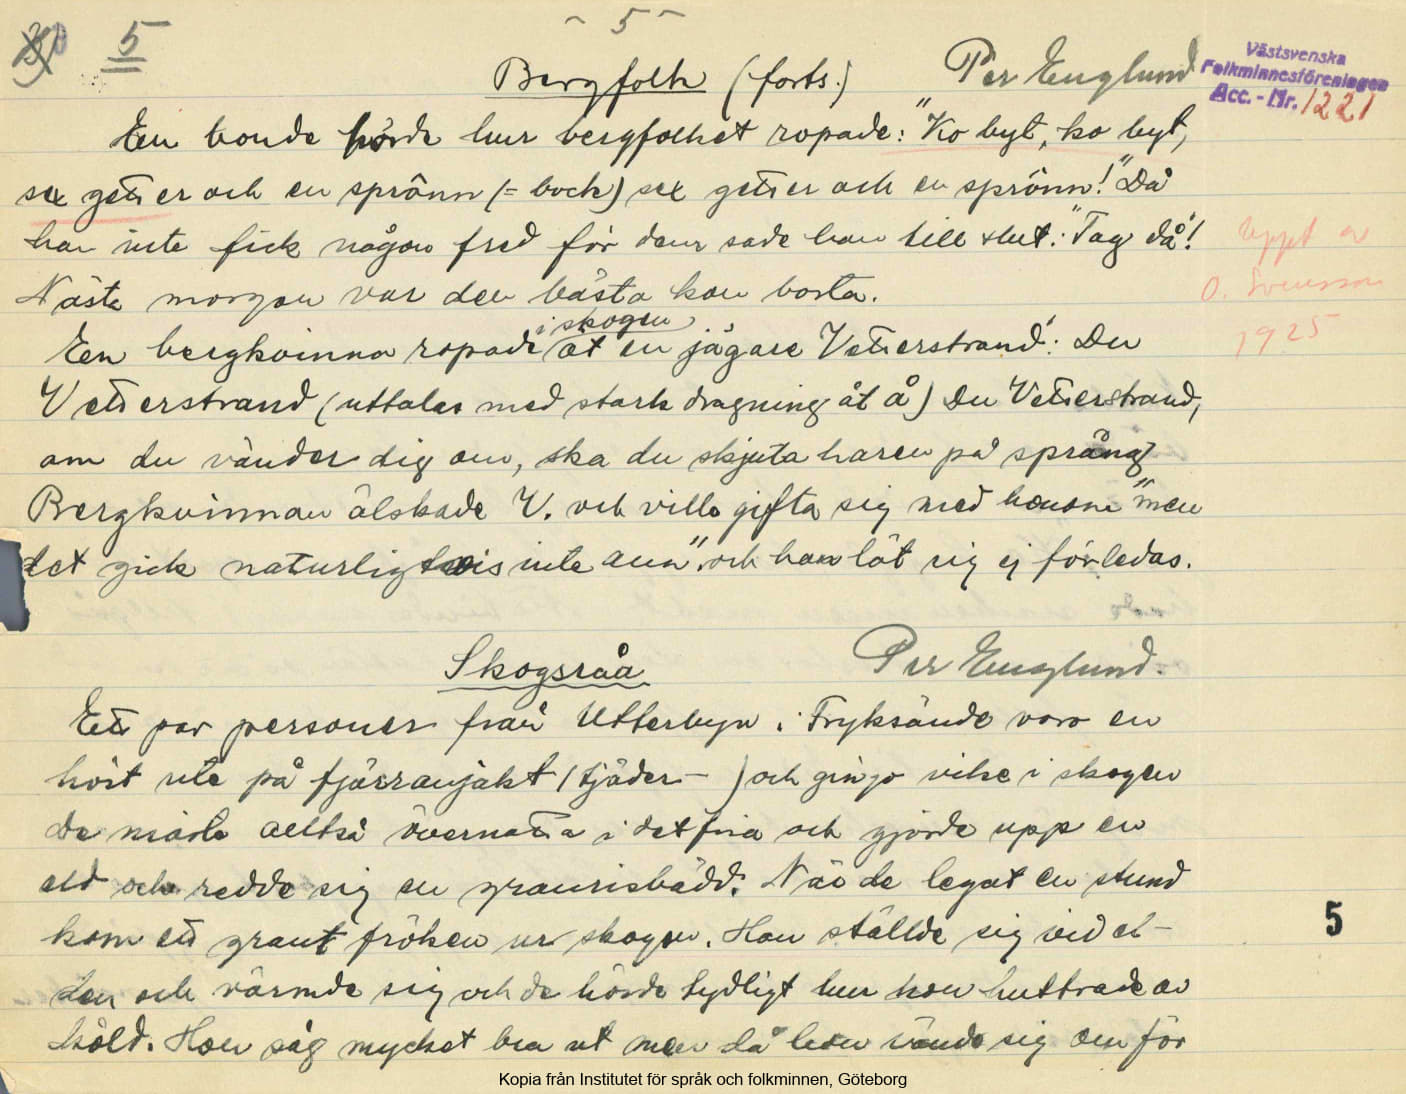 - 5 -
5
Bergfolk (forts.) Per Englund
Västsvenska
Folkminnesföreningen
Acc.-Nr. 1221
En bonde hörde hur bergfolket ropade: "Ko byt, ko byt,
sex getter och en sprönn (= bock) sex getter och en sprönn!" Då
han inte fick någon fred för dem sade han till slut: "Tag då!
Nästa morgon var den bästa kon borta.
i skogen
En bergkvinna ropade åt en jägare Vetterstrand: Du
Vetterstrand (uttalas med stark dragning åt å) Du Vetterstrand,
om du vänder dig om, ska du skjuta haren på språng
Bergkvinnan älskade V. och ville gifta sig med honom "men
det gick naturligtvis inte ann" och han lät sig ej förledas.
Uppt av
O. Svensson
1925
Skogsråa Per Englund.
Ett par personer från Utterbyn i Fryksände voro en
höst ute på fjärranjakt (tjäder- ) och gingo vilse i skogen
De måste alltså övernatta i det fria och gjorde upp en
eld och redde sig en granrisbädd. När de legat en stund
kom ett grant fröken ur skogen. Hon ställde sig vid el-
den och värmde sig och de hörde tydligt hur hon huttrade av
köld. Hon såg mycket bra ut men då hon vände sig om för
5
Kopia från Institutet för språk och folkminnen, Göteborg